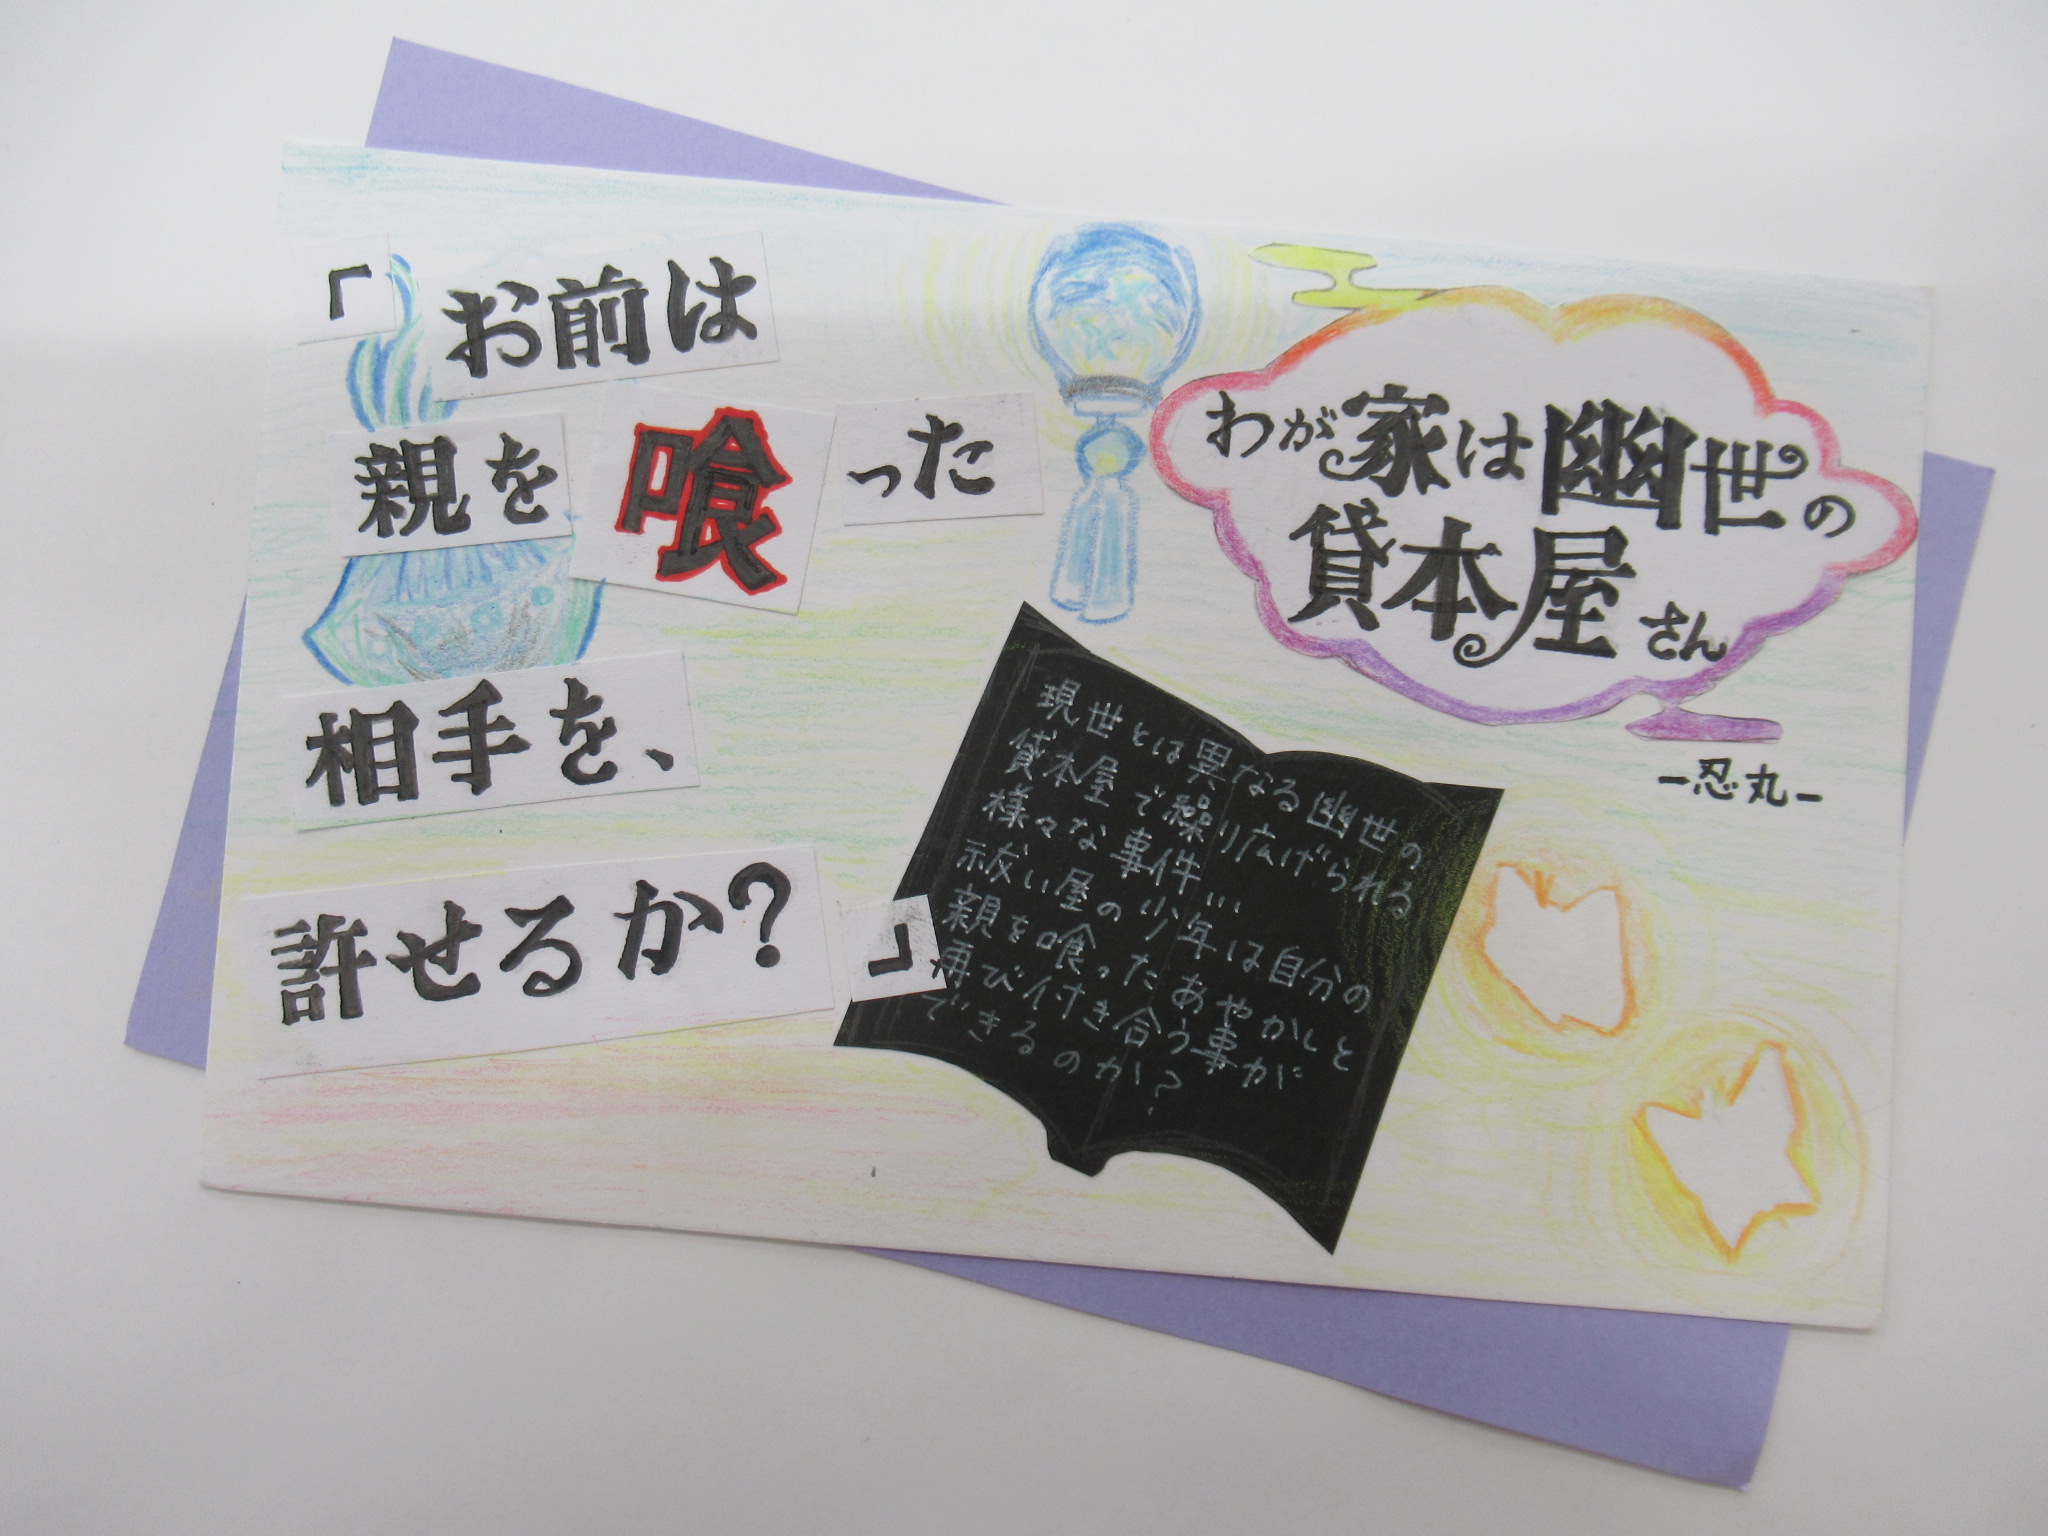 「お前は
親を喰った
相手を、
許せるか?」
わが家は幽世の
貸本屋さん
-忍丸-
現世とは異なる幽世の
貸本屋で繰り広げられる
様々な事件…
祓い屋の少年は自分の
親を喰ったあやかしと
再び付き合う事が
できるのか?